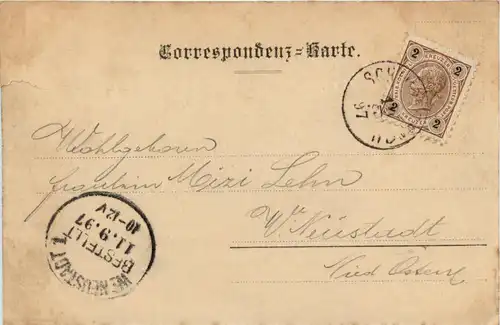 Correspondenz-Karte.
2 2
2 2
97
Wohlgeboren
Fräulein Mizi Lehn
Wr. Neustadt
Nied Österr
WR. NEUSTADT 1
BESTELLT
11.9.97
10-12V